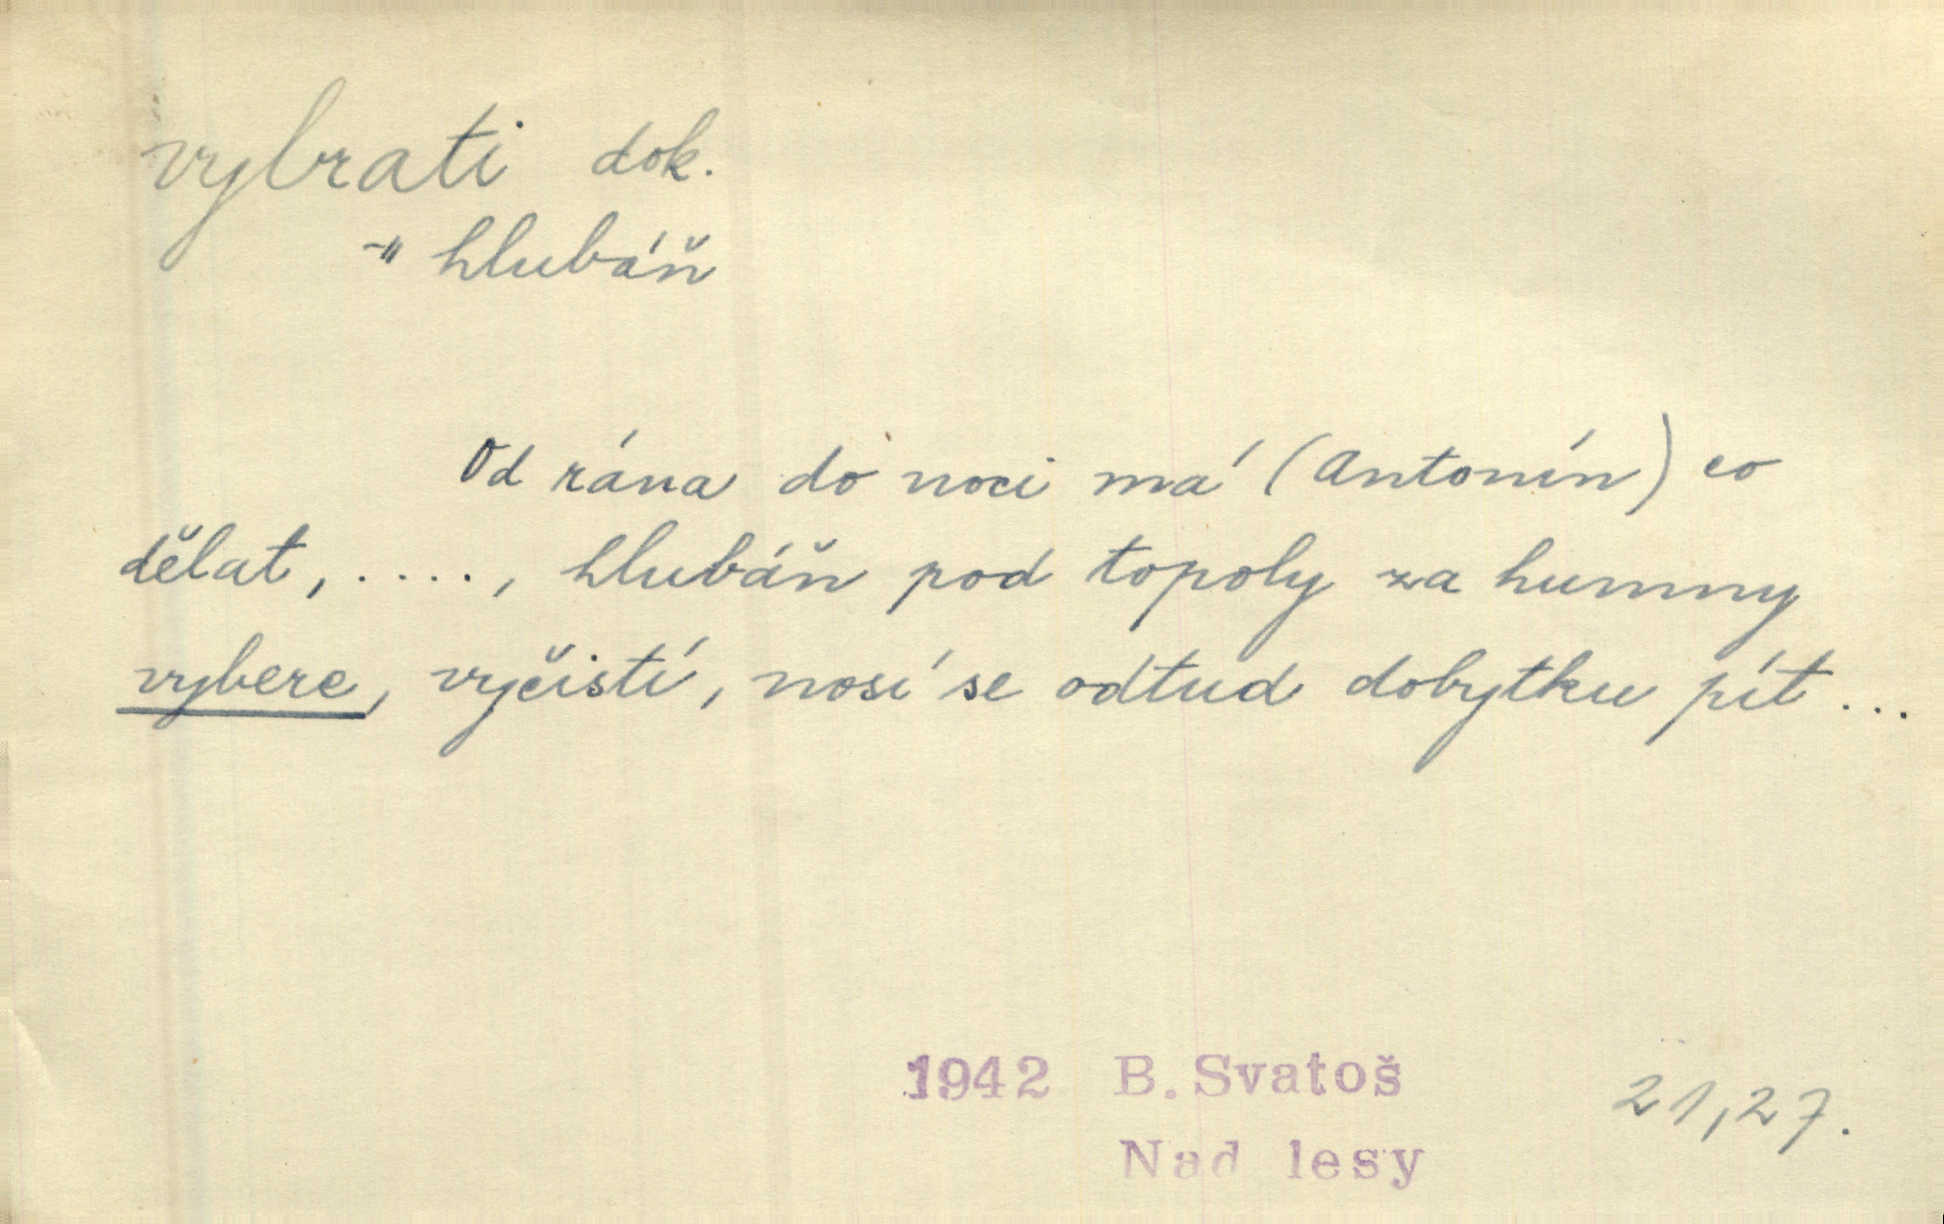 vybrati dok.
-"- hlubáň
Od rána do noci má (Antonín) co
dělat, ...., hlubáň pod topoly za humny
vybere, vyčistí, nosí se odtud dobytku pít ...
1942 B. Svatoš 21,27.
Nad lesy